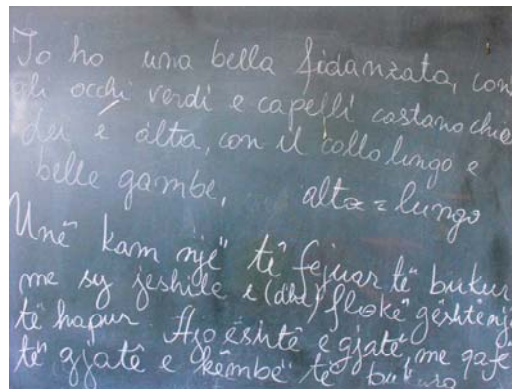 Io ho una bella fidanzata, con
gli occhi verdi e capelli castano chia
lei è alta, con il collo lungo e
belle gambe, alta = lungo
Unë kam një të fejuar të bukur
me sy jeshile e (dhe) flokë gështenjë
të hapur Ajo është e gjatë, me qafë
të gjatë e këmbë të